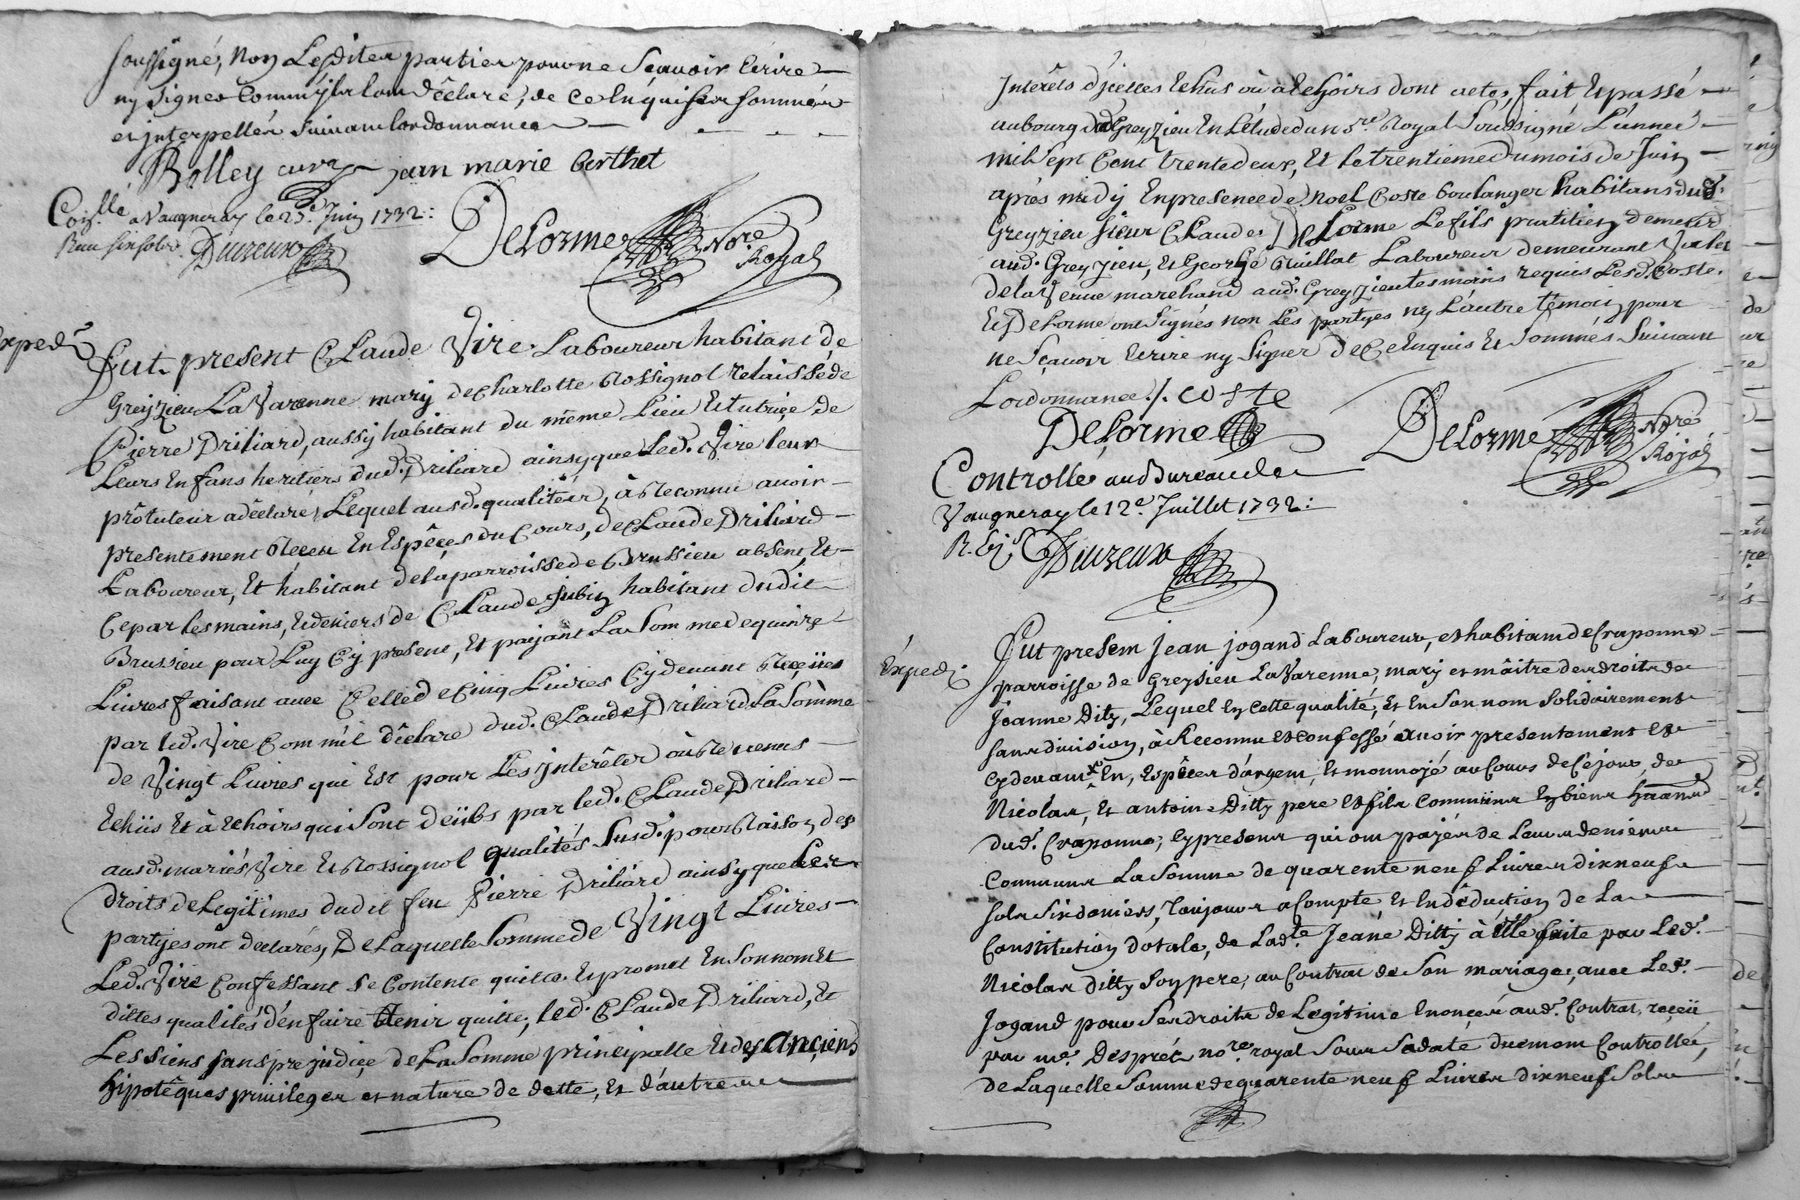 soussigné, non Lesdites parties pour ne sçavoir Ecrire
ny signer Comm'ils l'ont dêclaré, de ce Enquises sommées
et interpellées suivant lordonnance
Bolley curé jean marie berthet
Coñllé a Vaugneray le 29e. Juin 1732:
Reçu six sols Duireux
DeLorme Nore Royal
Exped.
Fut present CLaude Vire Laboureur habitant de
Greizieu La Varenne mary de Charlotte Rossignol relaissé de
Pierre Driliard, aussy habitant du même Lieu Et tutrice de
Leurs Enfans heritiers dud. Driliard ainsy que Led. Vire leur
prôtuteur a dêclaré, Lequel ausd. qualités, à Reconnu avoir
presentement Reçeu En Espêces du Cours, de CLaude Driliard
Laboureur, Et habitant de la parroisse de Brussieu absent, Et
Ce par les mains, Et deniers de CLaude Jubin habitant dudit
Brussieu pour Luy Cy present, Et paÿant La Somme de quinze
Livres faisant avec Celle de Cinq Livres Cy devant Reçeües
par led. Vire Comm'il dêclare dud. CLaude Driliard La Sômme
de Vingt Livres qui Est pour Les jntérêts ou Revenus
Echüs Et à Echoirs qui Sont deübs par led. CLaude Driliard
ausd. mariés Vire Et Rossignol qualités susd. pour Raison des
droits de Legitimes dudit feu Pierre Driliard ainsy que Les
partyes ont declarés, De Laquelle Somme de Vingt Livres
Led. Vire Confessant se Contente quitte Et promet En son nom Et
dittes qualités d'en faire tenir quitte, led. CLaude Driliard, Et
Les siens sans prejudice de La Somme principalle Et des anciens
hipotêques privileges et nature de dette, Et d'autres
Jnterêts d'jcelles Echus ou à Echoirs dont acte, fait Et passé
au bourg de Greyzieu En L'étude du nre. Royal Soussigné L'année
mil Sept Cent trente deux, Et le trentieme du mois de Juin
aprés midy En presence de Noel Coste boulanger habitans dud.
Greyzieu sieur CLaude DeLorme Le fils pratitien demeur
aud. Greyzieu, Et George Guillat Laboureur demeurant
de la Verne marchand aud. Greyzieu temoins requis Lesd. Coste
Et DeLorme ont Signés non Les partyes ny L'autre têmoin pour
ne Sçavoir Ecrire ny Signer de Ce Enquis Et Sommés Suivant
Lordonnance ./. coste
DeLorme DeLorme Noré Rojal
Controllé au Bureau de
Vaugneray le 12e. Juillet 1732:
R. Duireux
Exped.
Fut present jean jogand Laboureur, et habitant de Craponne
parroisse de Greysieu LaVarenne, mary et maître des droits de
Jeanne Ditty, Lequel En cette qualité, et En Son nom solidairement
sans division, à Reconnu et confessé avoir presentement et
cydevant En, Espêces d'argent, et monnoje au Cours de Ce jour, de
Nicolas, Et antoine Ditty pere et fils Communs En biens
dud. Craponne; cy presens qui ont pajés de Leurs deniers
Communs La Somme de quarente neuf Livres dixneuf
sols Six deniers, Toujours acompte Et En dêduction de La
Constitution dotale, de Lad.te Jeane Ditty à Elle faite par Led.
Nicolas ditty Son pere, au Contrat de Son mariage, avec Led.
Jogand pour Ses droits de Legitime Enoncés aud. Contrat, reçeü
par me. Desprét nore. royal Sous Sa date duement Controllée,
de Laquelle Somme de quarente neuf Livres dixneuf Sols